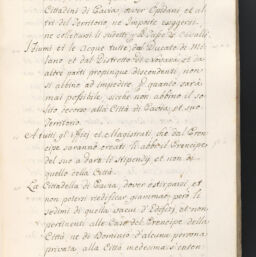 Cittadini di Pavia, dover Epidani et al
tri del Territorio, ne Imposte exiggersi,
ne collettarsi li sudetti per le Tasse de Cavalli
I fiumi et le Acque tutte dal Ducato di Mi
lano et dal Distretto di Novara et da
altre parti propinque discendenti non
si abbino ad impedire per quanto sarà
mai possibile, acciò non abbino il so
lito decorso alla Città di Pavia, et suo
Territorio.
A tutti gl'Offitij et Magistrati, che dal Pren
cipe saranno creati li abbi il Prencipe
del suo a dare li Stipendij, et non di
quello della Città.
La Cittadella di Pavia, dover estirparsi, et
non potersi reedificar giammai, però li
sedimi di quella vacui d'Edifitij, et non
pertinenti alle Case del Prencipe della
Città ne di Dominio d'alcuna persona
privata alla Città medesima s'inten